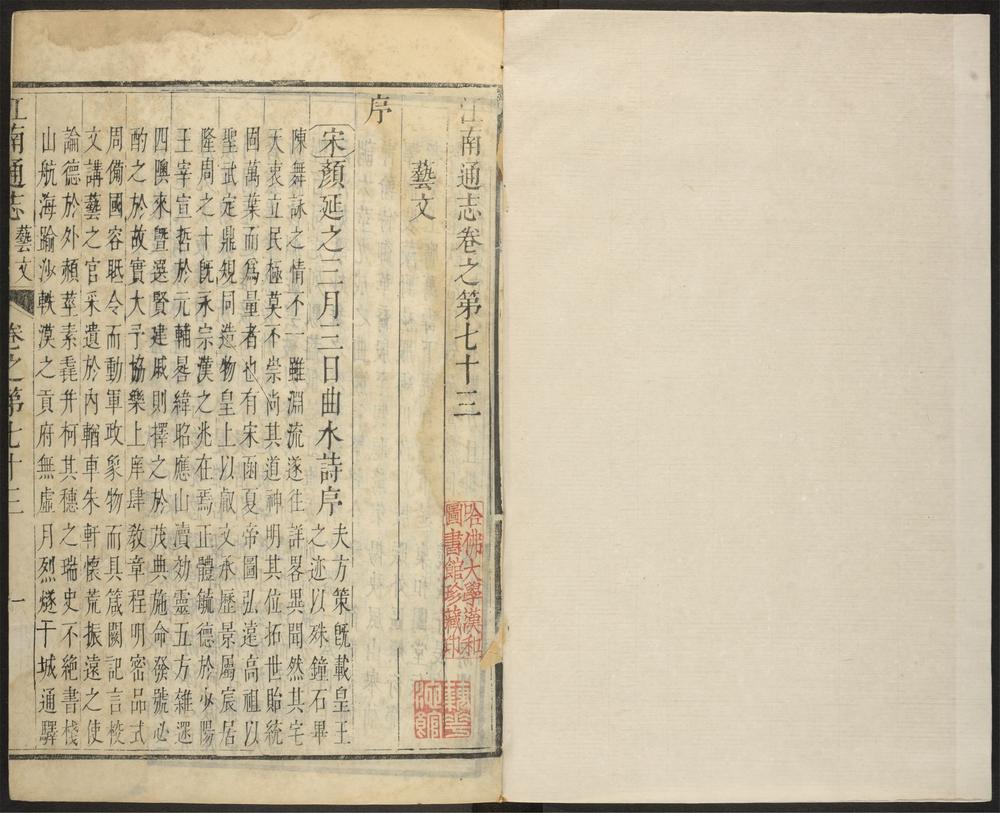 江南通志卷之第七十三
藝文
序
宋顏延之三月三日曲水詩序
夫方策既載皇王
之迹以殊鐘石畢
陳舞詠之情不一雖淵流遂往詳畧異聞然其宅
天衷立民極莫不崇尚其道神明其位拓世貽統
固萬葉而為量者也有宋函夏帝圖弘遠高祖以
聖武定鼎規同造物皇上以叡文承歷景屬宸居
隆周之卜既永宗漢之兆在焉正體毓德於少陽
王宰宣哲於元輔晷緯昭應山瀆効靈五方雜遝
四隩來曁選賢建戚則擇之於茂典施命發號必
酌之於故實大予協樂上庠肆教章程明密品式
周備國容眡令而動軍政象物而具箴闕記言校
文講藝之官采遺於內輶車朱軒懷荒振遠之使
論德於外頳莖素毳并柯其穗之瑞史不絕書棧
山航海踰沙軼漠之貢府無虛月烈燧干城通驛
江南通志
藝文
卷之第七十三
一
哈佛大學漢和
圖書館珍藏印